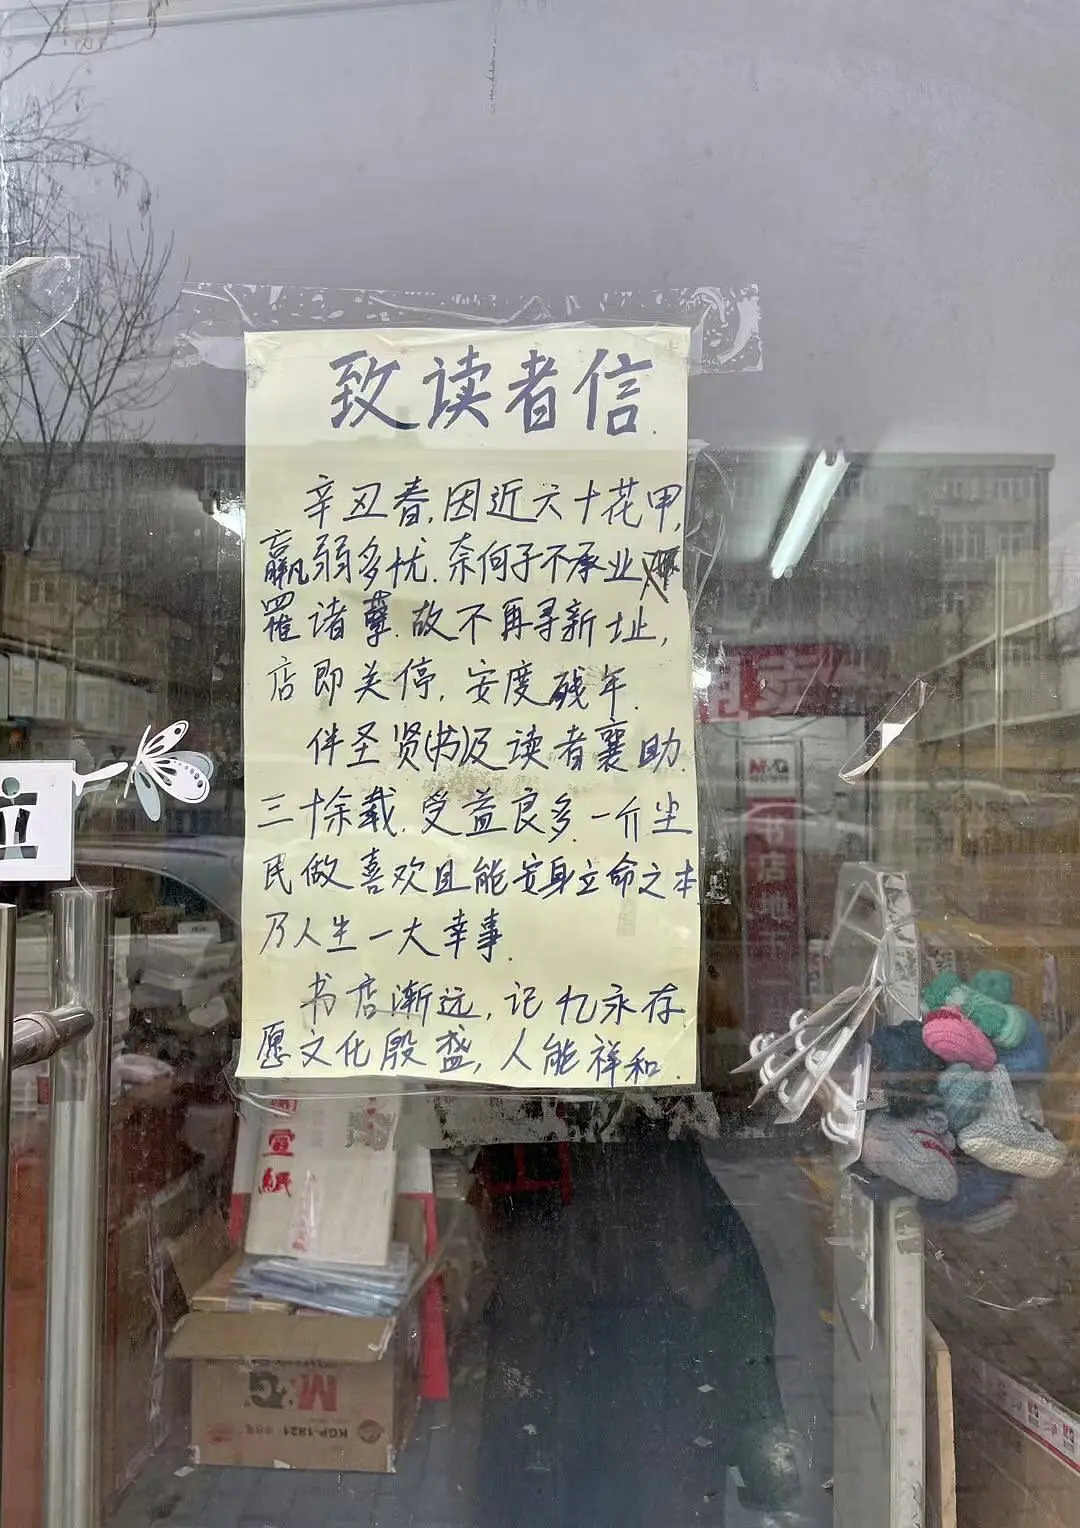 致读者信.
辛丑春,因近六十花甲,
羸弱多忧.奈何子不承业
罹诸孽.故不再寻新址,
店即关停,安度残年.
伴圣贤(书)及读者襄助.
三十余载.受益良多.一介尘
民做喜欢且能安身立命之本
乃人生一大幸事.
书店渐远,记忆永存.
愿文化殷盛,人能祥和.
宣
紙
M&G
KGP-1821
书店